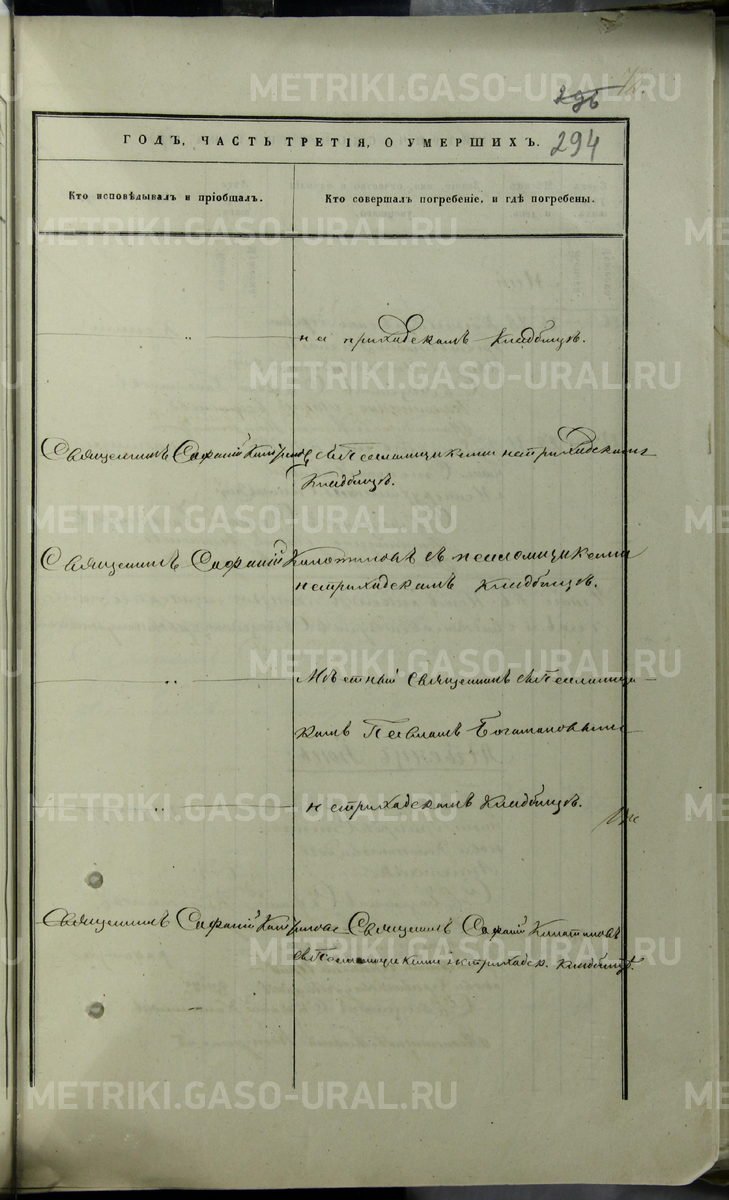 METRIKI.GASO-URAL.RU
296
294
ГОДЪ, ЧАСТЬ ТРЕТІЯ, О УМЕРШИХЪ.
Кто исповѣдывалъ и пріобщалъ.
Кто совершалъ погребеніе, и гдѣ погребены.
на приходскомъ кладбищѣ.
Священникъ Софоній съ Псаломщиками на приходскомъ
кладбищѣ.
Священникъ Софоній съ псаломщиками
на приходскомъ кладбищѣ.
Мѣстный Священникъ съ Псаломщи-
комъ Павломъ Богомоловымъ
на приходскомъ кладбищѣ.
Священникъ Софоній Священникъ Софоній
съ Псаломщиками на приходск. кладбищѣ.